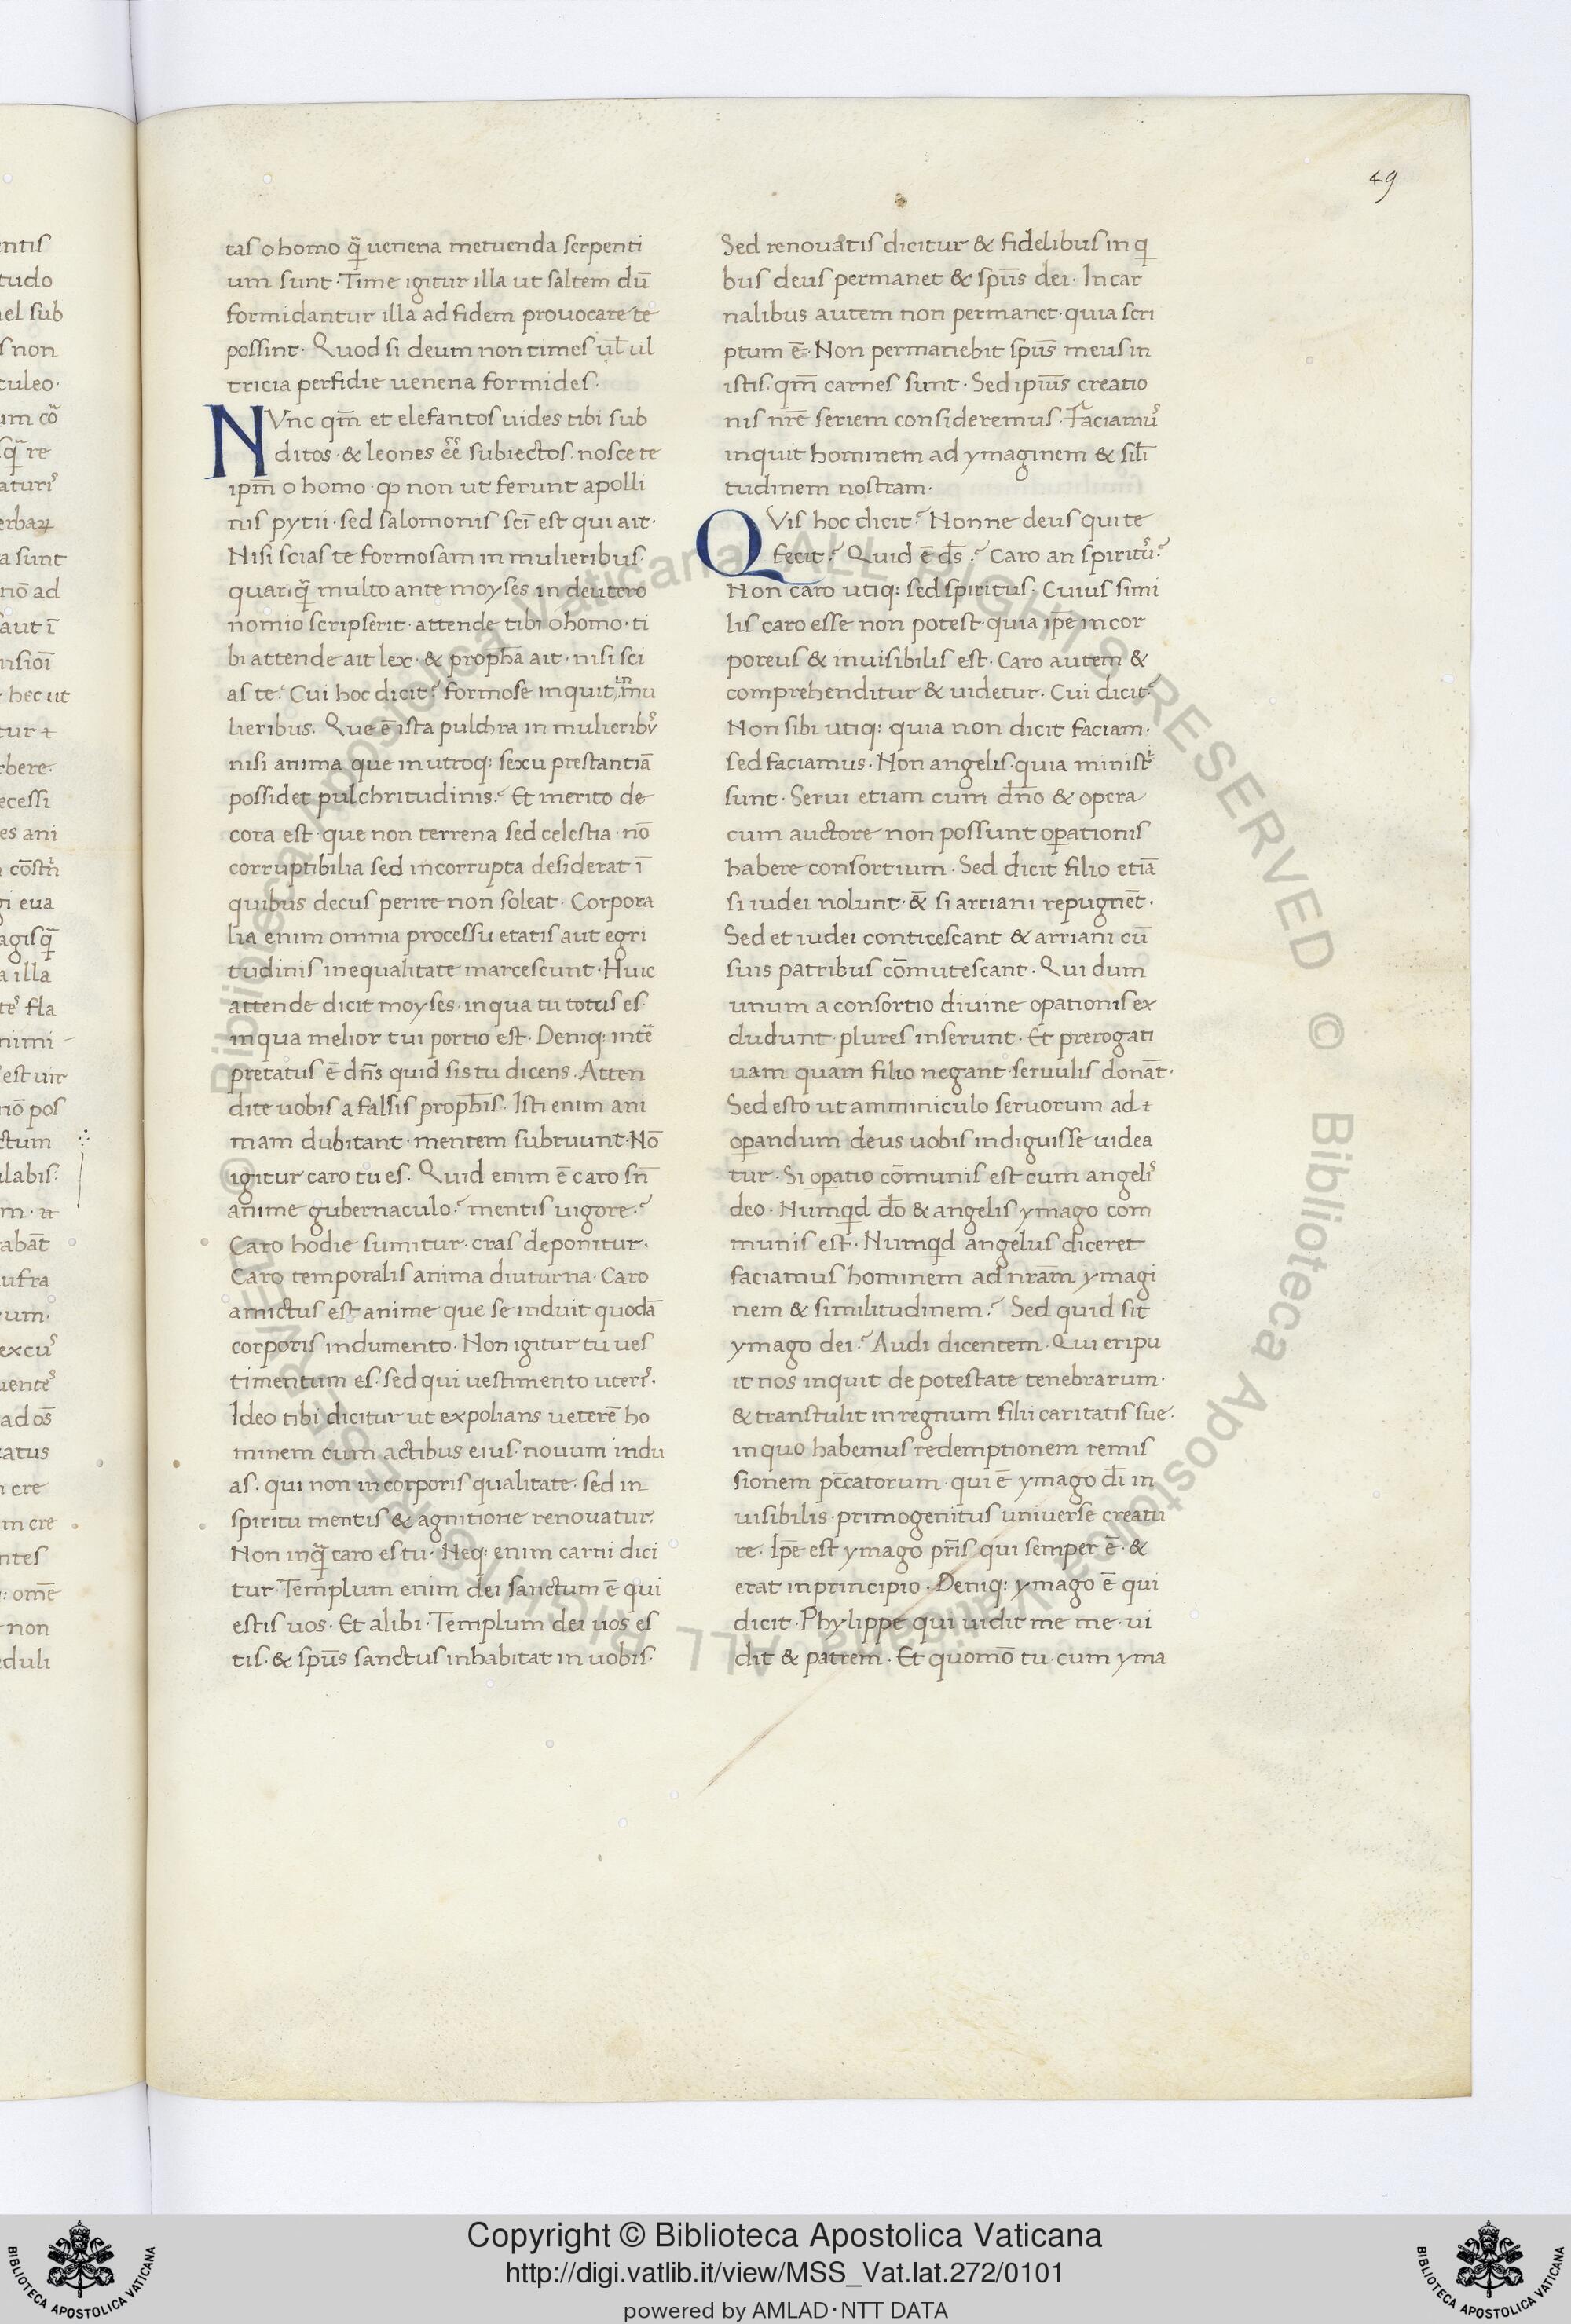 49
tas o homo q̄ uenena metuenda serpenti
um sunt · Time igitur illa ut saltem dū
formidantur illa ad fidem prouocare te
possint · Quod si deum non times ul̄ ul
tricia perfidie uenena formides ·
NVnc qm̄ et elefantos uides tibi sub
ditos · & leones eē subiectos · nosce te
ipm̄ o homo · ꝙ non ut ferunt apolli
nis pytii · sed salomonis sci est qui ait ·
Nisi scias te formosam in mulieribus ·
quanq̄ multo ante moyses in deutero
nomio scripserit · attende tibi o homo · ti
bi attende ait lex · & proph̄a ait · nisi sci
as te? Cui hoc dicit? formose inquit in mu
lieribus. Que ē ista pulchra in mulierib9
nisi anima que in utroq: sexu prestantiā
possidet pulchritudinis? Et merito de
cora est · que non terrena sed celestia · nō
corruptibilia sed incorrupta desiderat ī
quibus decus perire non soleat · Corpora
lia enim omnia processu etatis aut egri
tudinis inequalitate marcescunt · Huic
attende dicit moyses · in qua tu totus es ·
in qua melior tui portio est · Deniq: inte
pretatus ē dn̄s quid sis tu dicens · Atten
dite uobis a falsis proph̄is · Isti enim ani
mam dubitant · mentem subruunt · Nō
igitur caro tu es. Quid enim ē caro sn̄
anime gubernaculo? mentis uigore?
Caro hodie sumitur · cras deponitur ·
Caro temporalis anima diuturna · Caro
amictus est anime que se induit quodā
corporis indumento · Non igitur tu ues
timentum es · sed qui uestimento uteris ·
Ideo tibi dicitur ut expolians ueterē ho
minem cum actibus eius · nouum indu
as · qui non in corporis qualitate · sed in
spiritu mentis & agnitione renouatur.
Non inq̄ caro es tu · Neq: enim carni dici
tur · Templum enim dei sanctum ē qui
estis uos · Et alibi · Templum dei uos es
tis · & sp̄us sanctus inhabitat in uobis ·
Sed renouatis dicitur & fidelibus in q
bus deus permanet & sp̄us dei · In car
nalibus autem non permanet · quia scri
ptum ē · Non permanebit sp̄us meus in
istis · qm̄ carnes sunt · Sed ipius creatio
nis nr̄e seriem consideremus · Faciamus
inquit hominem ad ymaginem & sil̄i
tudinem nostram ·
QVis hoc dicit? Nonne deus qui te
fecit? Quid ē d̄s? Caro an spiritus?
Non caro utiq: sed spiritus · Cuius simi
lis caro esse non potest · quia ip̄e incor
poreus & inuisibilis est · Caro autem &
comprehenditur & uidetur · Cui dicit?
Non sibi utiq: quia non dicit faciam ·
sed faciamus · Non angelis · quia minist'
sunt · Serui etiam cum dn̄o & opera
cum auctore non possunt oꝑationis
habere consortium · Sed dicit filio etiā
si iudei nolunt · & si arriani repugnēt ·
Sed et iudei conticescant & arriani cū
suis patribus cōmutescant · Qui dum
unum a consortio diuine oꝑationis ex
cludunt · plures inserunt · Et prerogati
uam quam filio negant seruulis donāt ·
Sed esto ut amminiculo seruorum ad
oꝑandum deus uobis indiguisse uidea
tur · Si oꝑatio cōmunis est cum angelis
deo · Numqd do & angelis ymago com
munis est · Numqd angelus diceret
faciamus hominem ad nrām ymagi
nem & similitudinem? Sed quid sit
ymago dei? Audi dicentem · Qui eripu
it nos inquit de potestate tenebrarum ·
& transtulit in regnum filii caritatis sue ·
in quo habemus redemptionem remis
sionem pc̄catorum · qui ē ymago di in
uisibilis · primogenitus uniuerse creatu
re · Ip̄e est ymago pr̄is qui semper ē · &
erat in principio · Deniq: ymago ē qui
dicit · Phylippe qui uidit me me · ui
dit & patrem · Et quomō tu · cum yma
© Biblioteca Apostolica Vaticana ALL RIGHTS RESERVED
Copyright © Biblioteca Apostolica Vaticana
http://digi.vatlib.it/view/MSS_Vat.lat.272/0101
powered by AMLAD·NTT DATA
BIBLIOTECA APOSTOLICA VATICANA
BIBLIOTECA APOSTOLICA VATICANA